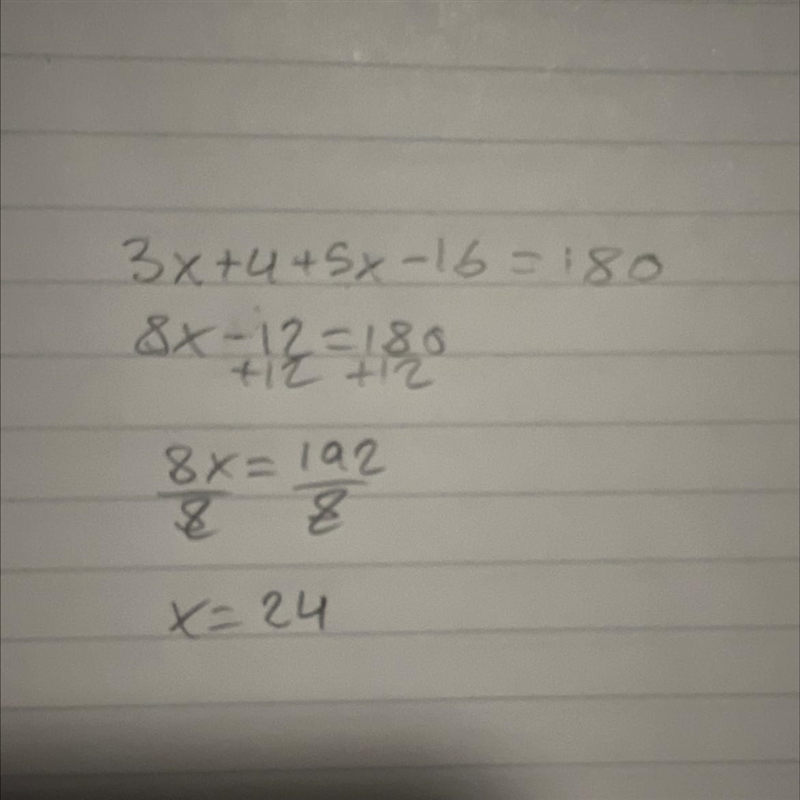 3x+4+5x-16=180
8x-12=180
+12 +12
8x=192
8 8
x=24